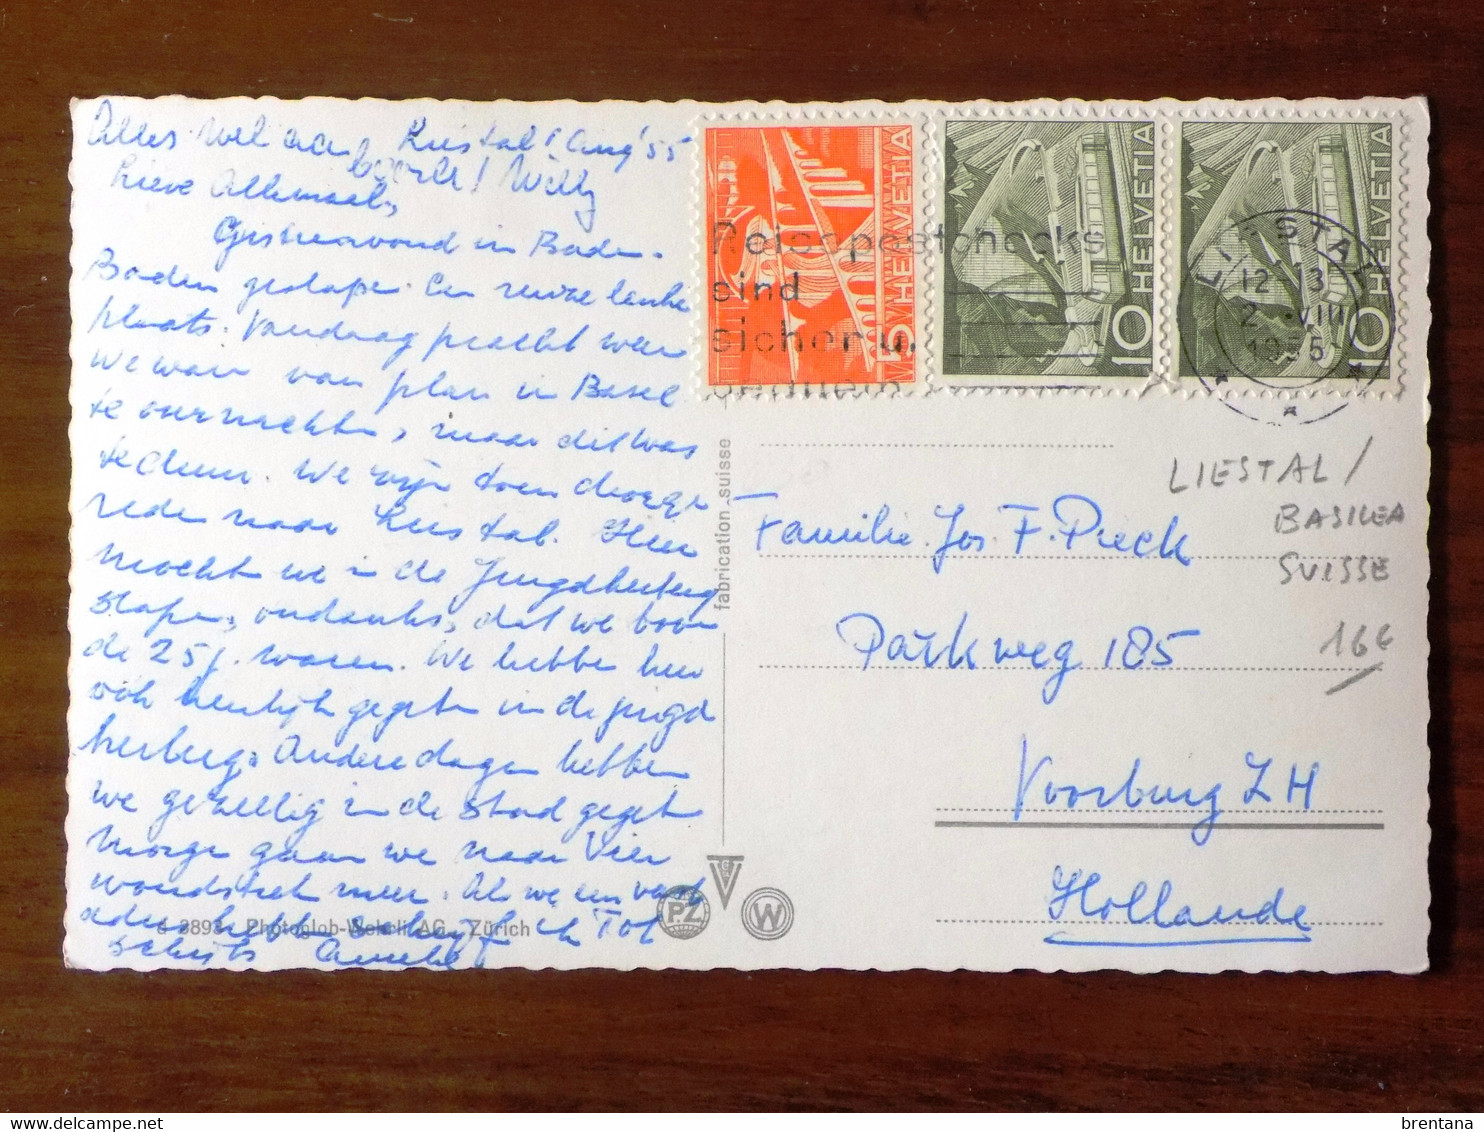 Alles wel aan Liestal 1 Aug '55
boord! Willy
Lieve Allemaal,
Gisteravond in Baden-
Baden geslapen. Een reuze leuke
plaats. Vandaag pracht weer
We waren van plan in Basel
te overnachten, maar dit was
te duur. We zijn toen doorge-
reden naar Liestal. Hier
mochten we in de Jeugdherberg
slapen, ondanks, dat we boven
de 25 j. waren. We hebben hier
ook heerlijk gegeten in de jeugd
herberg. Andere dagen hebben
we gezellig in de stad gegeten
Morgen gaan we naar Vier
woudstedenmeer. Als we een vast
adres hebben schrijf ik Tot
schrijfs
d 8893 Photoglob-Wehrli AG., Zürich
fabrication suisse
HELVETIA
5
HELVETIA
10
HELVETIA
10
Reisepostchecks
sind
sicher u.
bequem
LIESTAL
12-13
2. VIII
1955
LIESTAL /
BASILEA
SUISSE
16€
Familie Jos. F. Pieck
Parkweg 185
Voorburg ZH
Hollande
PZ
W
brentana